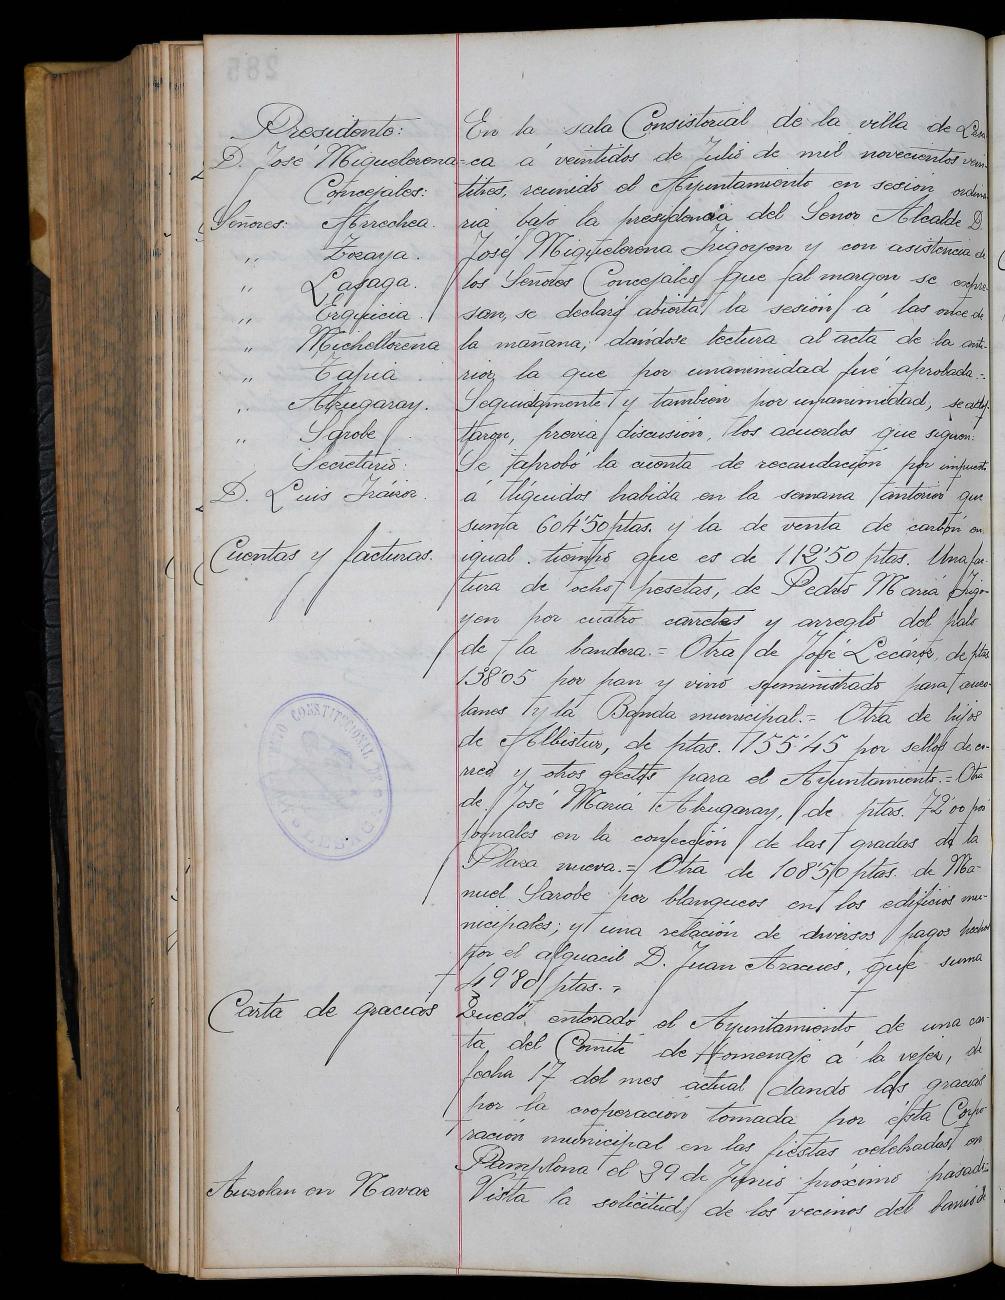 Presidente:
D. José Miguelerena
Concejales:
Señores: Arrechea.
" Zozaya.
" Lasaga.
" Erquicia.
" Micheltorena
" Tapia.
" Alzugaray.
" Sarobe
Secretario:
D. Luis Iráizoz.
En la sala Consistorial de la villa de Lesa-
ca á veintidos de Julio de mil novecientos vein-
titres, reunido el Ayuntamiento en sesion ordina-
ria bajo la presidencia del Señor Alcalde D.
José Miguelerena Irigoyen y con asistencia de
los Señores Concejales que al margen se expre-
san, se declaró abierta la sesión á las once de
la mañana, dándose lectura al acta de la ante-
rior, la que por unanimidad fué aprobada.=
Seguidamente y tambien por unanimidad, se adop-
taron, previa discusion, los acuerdos que siguen:
Cuentas y facturas.
Se aprobó la cuenta de recaudación por impuesto
á líquidos habida en la semana anterior que
suma 604'50 ptas. y la de venta de carbón en
igual tiempo que es de 112'50 ptas. Una fac-
tura de ocho pesetas, de Pedro Maria Irigo-
yen por cuatro carretes y arreglo del palo
de la bandera.= Otra de José Lecároz, de ptas
138'05 por pan y vino suministrado para auzo-
lanes y la Banda municipal.= Otra de hijos
de Albistur, de ptas. 155'45 por sellos de co-
rreo y otros efectos para el Ayuntamiento.= Otra
de José Maria Alzugaray, de ptas. 72'00 por
jornales en la confección de las gradas de la
Plaza nueva.= Otra de 108'50 ptas. de Ma-
nuel Sarobe por blanqueos en los edificios mu-
nicipales; y una relación de diversos pagos hechos
por el alguacil D. Juan , que suma
49'80 ptas.=
Carta de gracias
Quedó enterado el Ayuntamiento de una car-
ta del Comité de Homenaje á la vejez, de
fecha 17 del mes actual dando las gracias
por la cooperación tomada por ésta Corpo-
ración municipal en las fiestas celebradas en
Pamplona el 29 de Junio próximo pasado=
Auzolan en Navaz
Vista la solicitud de los vecinos del barrio de
285
CONSTITUCIONAL DE